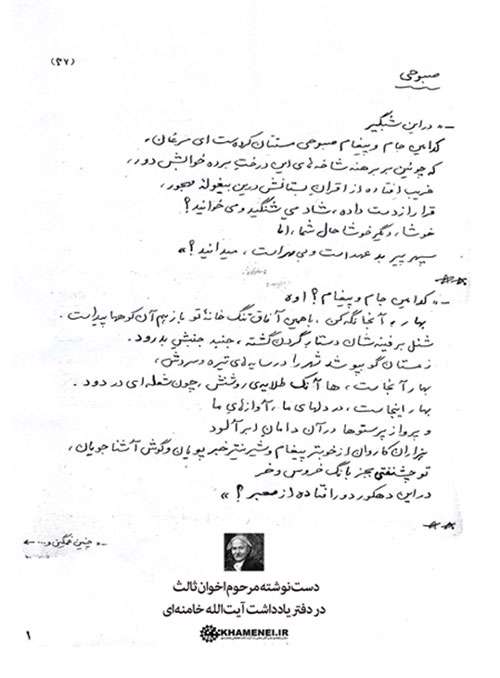 (۴۷)
صبوحی
- « در این شبگیر
کدامین جام و پیغام صبوحی مستتان کرده‌ست ای مرغان،
که چونین بر برهنه شاخه‌های این درخت برده خوابش دور،
غریب افتاده از اقران بستانش درین بیغوله مهجور،
قرار از دست داده، شاد می‌شنگید و می‌خوانید؟
خوشا، دگر خوشا حال شما، اما
سپهر پیر بد عهد است و بی مهر است، میدانید؟»
- « کدامین جام و پیغام؟ اوه
بهار، آنجا نگه کن، با همین آفاق تنگ خانهٔ تو باز هم آن کوهها پیداست.
شنل برفینه‌شان دستار گردن گشته، جنبد جنبش بدرود.
زمستان گو بپوشد شهر را در سایه‌های تیره و سردش،
بهار آنجاست، ها آنک طلایه‌ی روشنش، چون شعله‌ای در دود.
بهار اینجاست، در دلهای ما، آوازهای ما
و پرواز پرستوها در آن دامان ابر آلود
هزاران کاروان از خوبتر پیغام و شیرین‌تر خبر پویان و گوش آشنا جویان،
تو چشنفتی بجز بانگ خروس و خر
در این دهکور دور افتاده از معبر؟»
« چنین غمگین و... ←
دست‌نوشته مرحوم اخوان ثالث
در دفتر یادداشت آیت‌الله خامنه‌ای
KHAMENEI.IR
۱